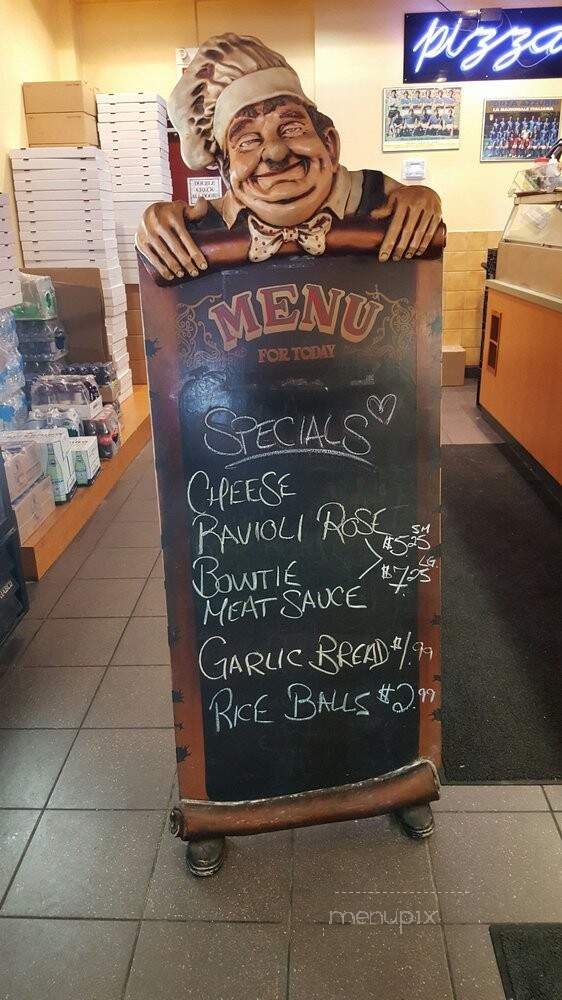 pizza
LA NAZIONALE ITALIANA
MENU
FOR TODAY
SPECIALS
CHEESE
RAVIOLI ROSE
SM
$5.25
LG.
$7.25
BOWTIE
MEAT SAUCE
GARLIC BREAD $1.99
RICE BALLS $2.99
menupix